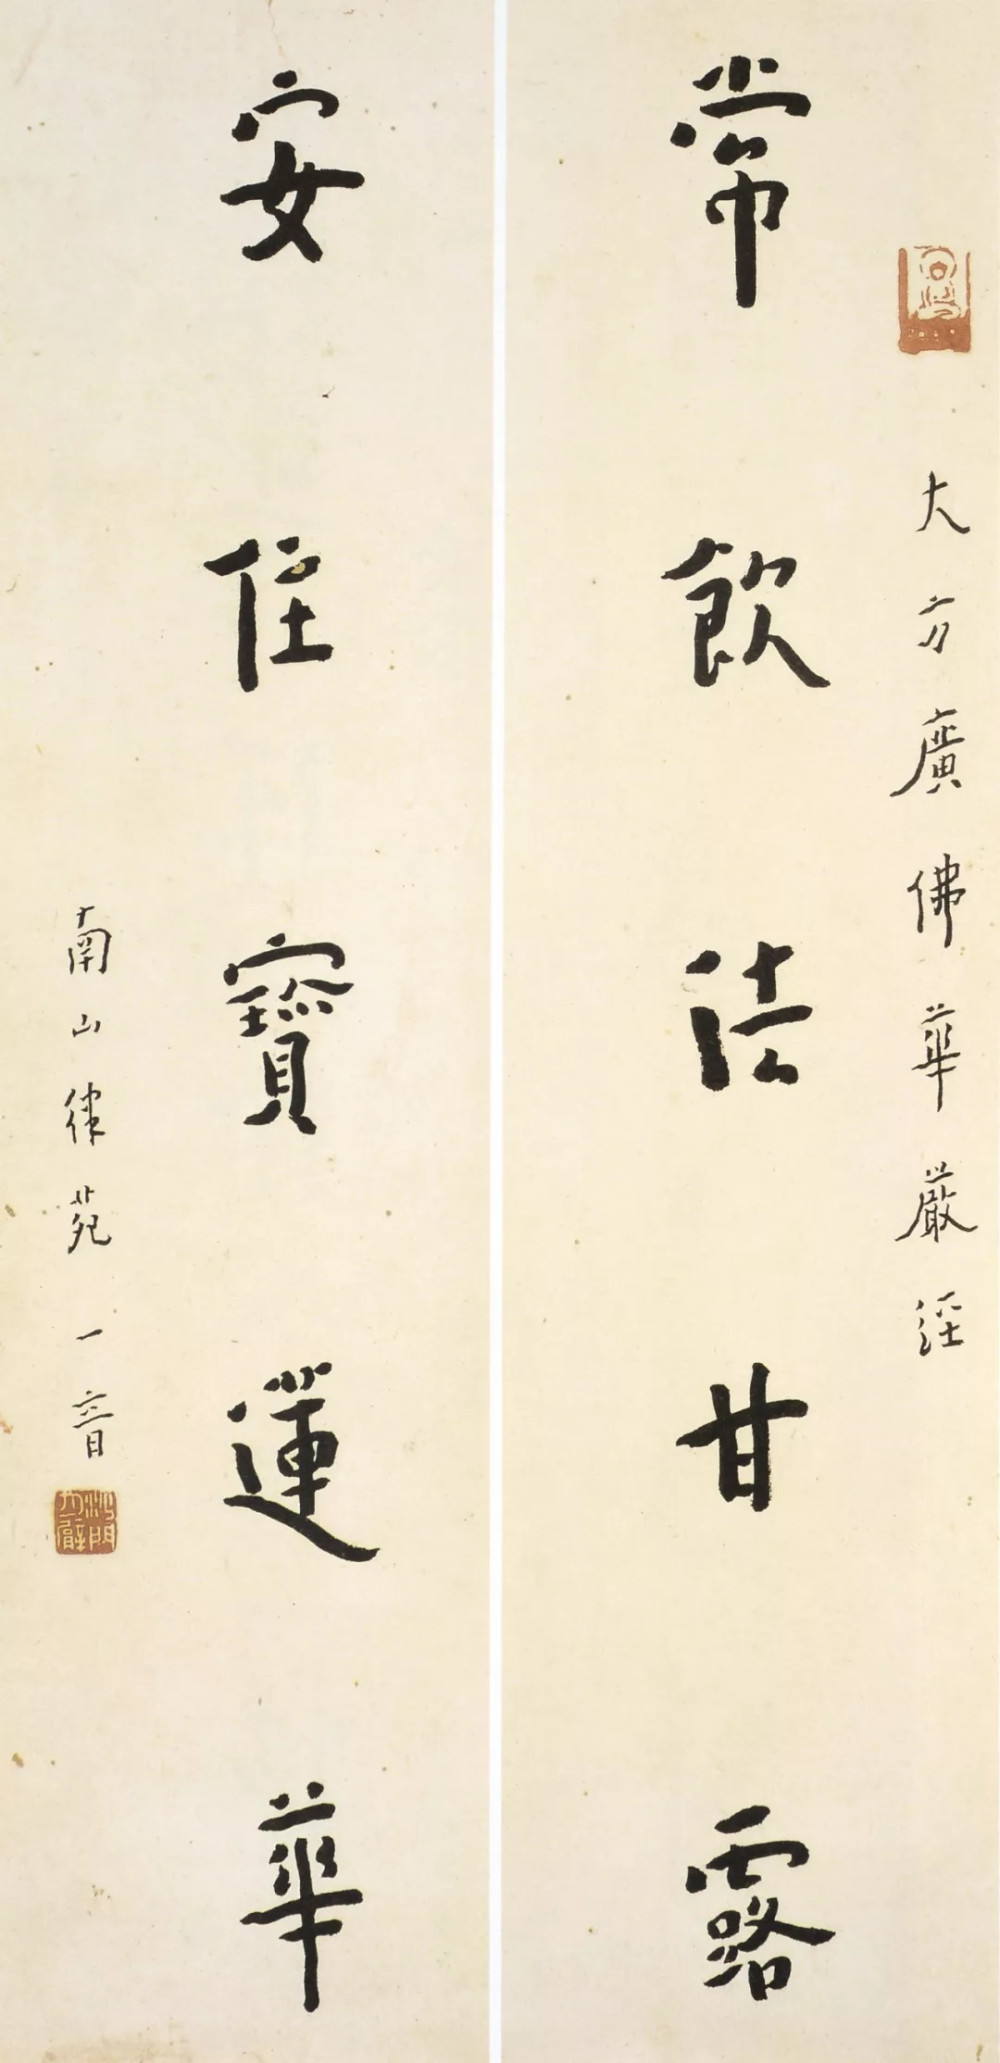 大方廣佛華嚴經
常飲法甘露
安住寶蓮華
南山律苑 一音
沙門一音